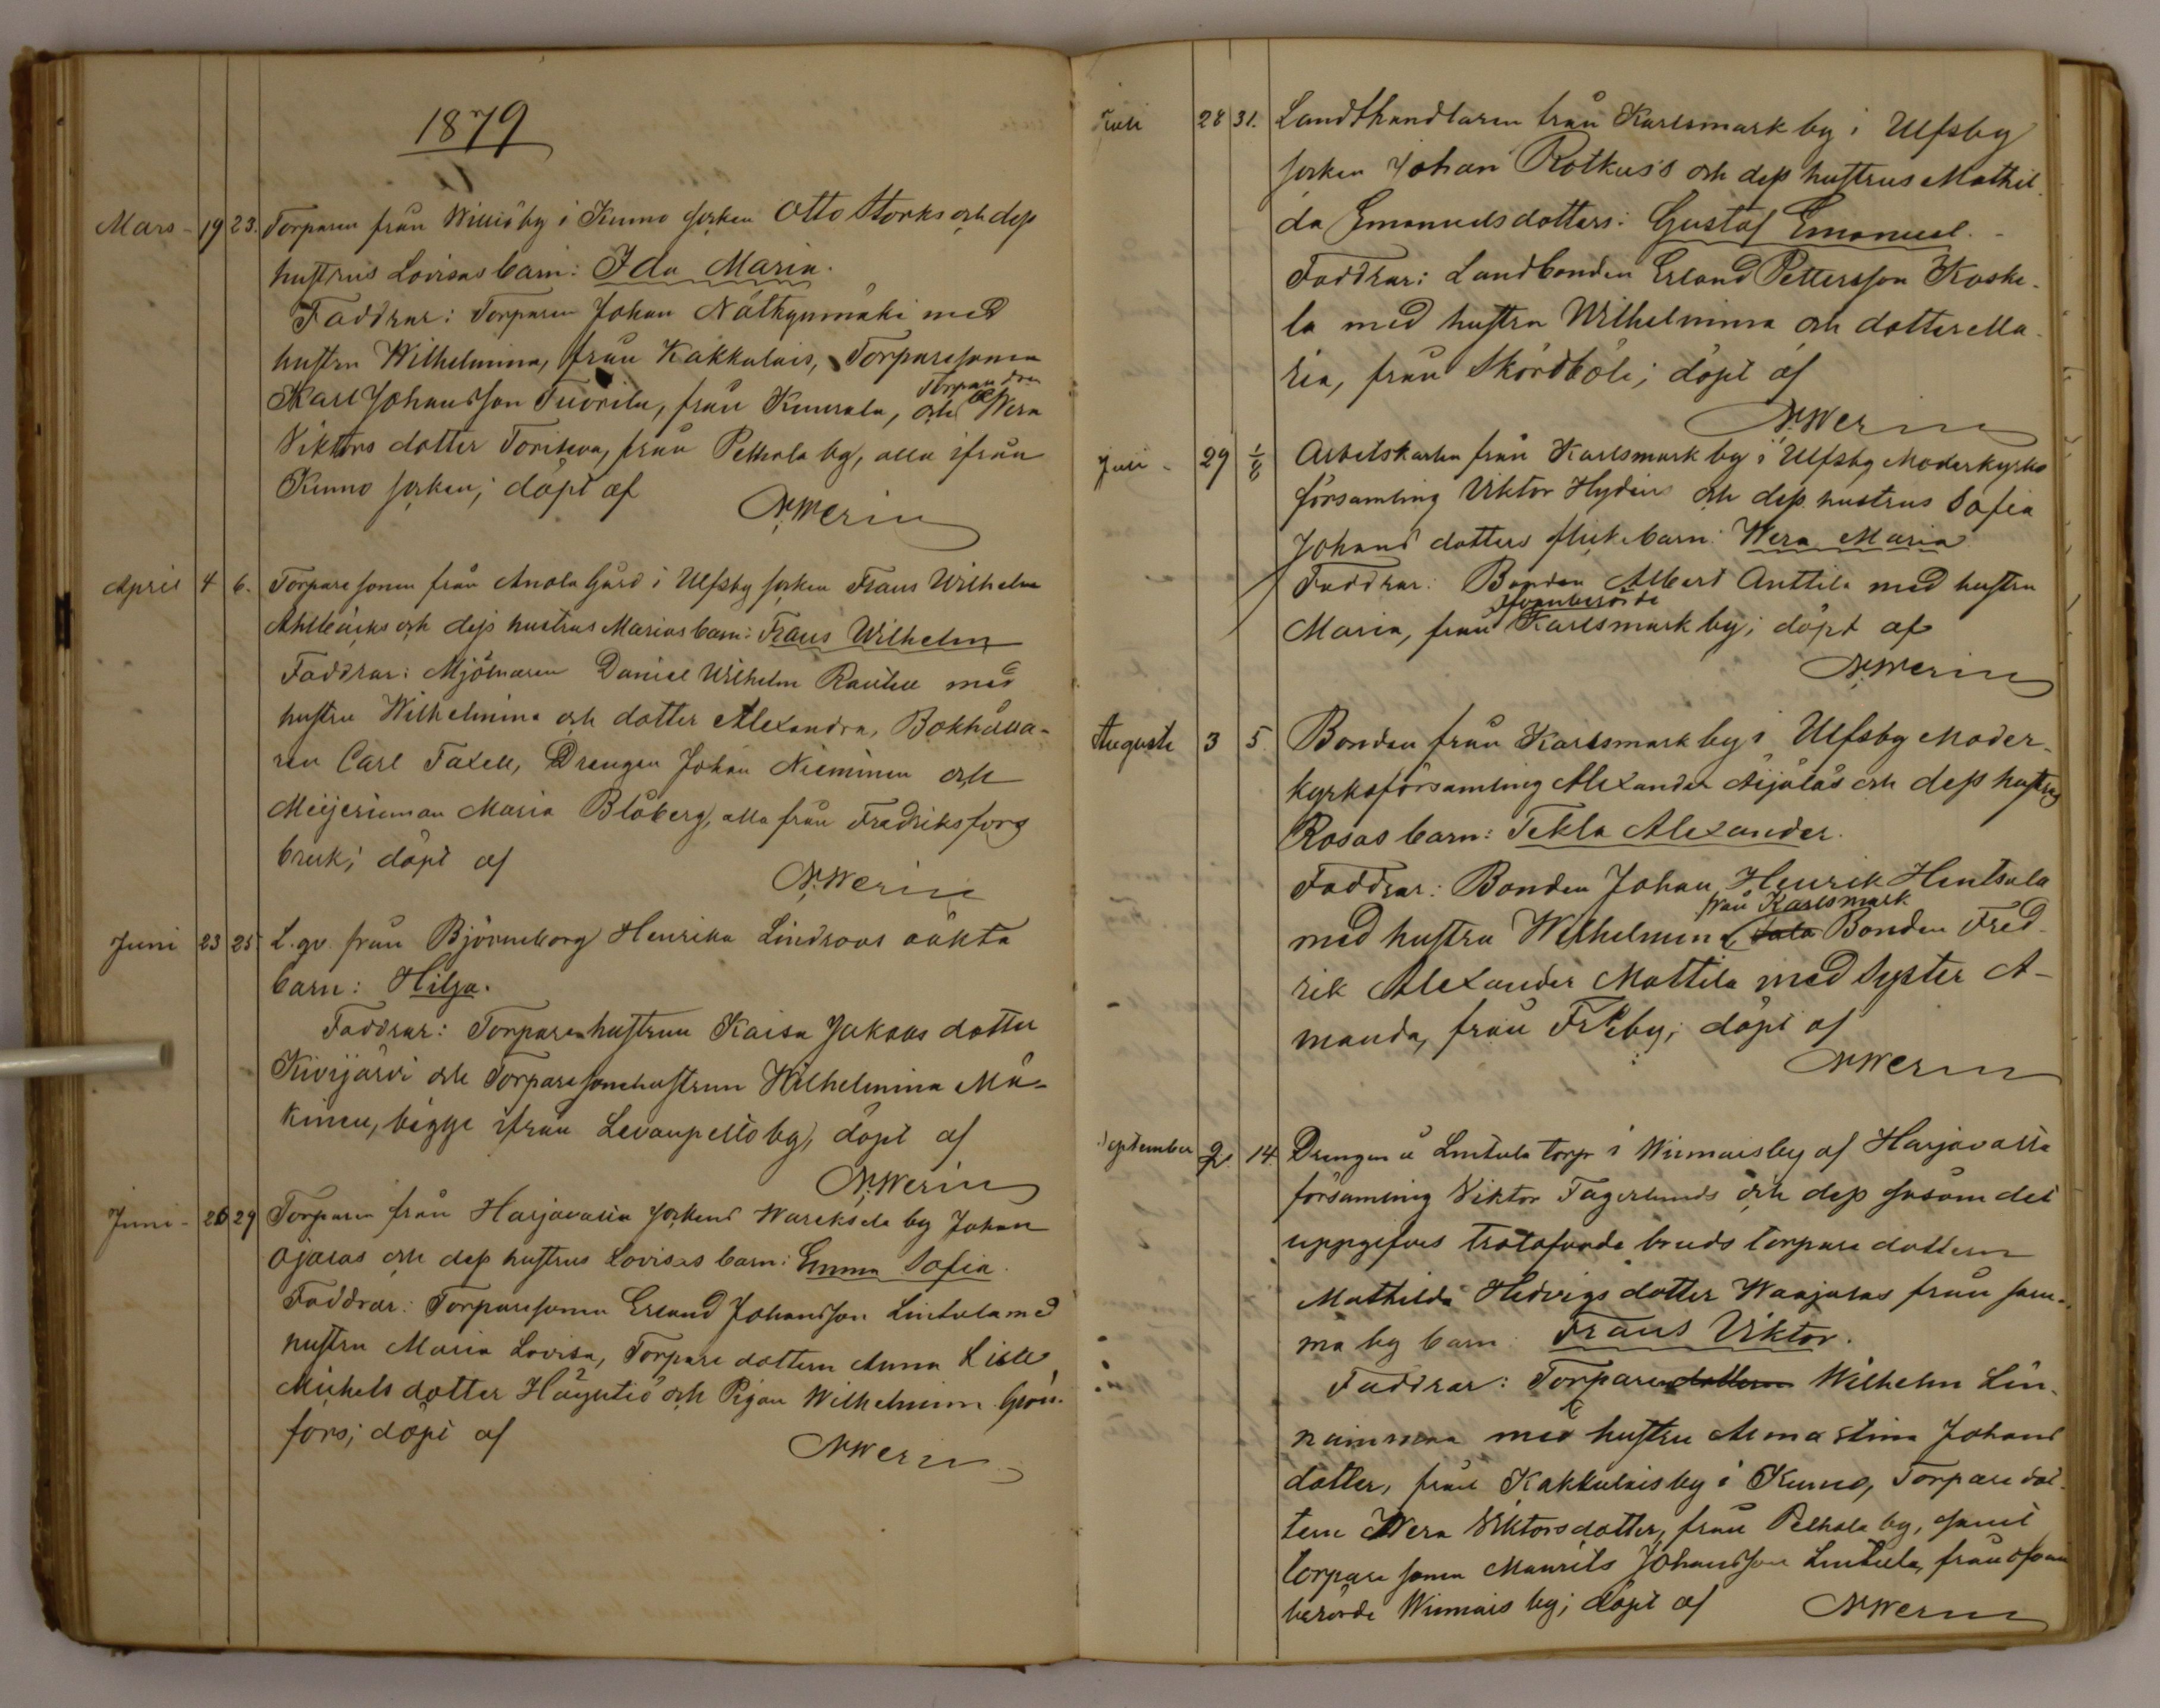 1879
Mars - 19 23. Torparen från Williöby i Kumo socken Otto Storks och dess
hustrus Lovisas barn: Ida Maria.
Faddrar: Torparen Johan Nätkynmäki med
hustru Wilhelmina, från Kakkulais, Torparesonen
Karl Johansson Tuorila, från Kumala, och Wera
Viktors dotter Toriseva, från Pelhola by, alla ifrån
Kumo socken; döpt af
N. Werin
April 4 6. Torparesonen från Anola Gård i Ulfsby socken Frans Wilhelm
Ahlbäcks och dess hustrus Marias barn: Frans Wilhelm
Faddrar: Mjölnaren Daniel Wilhelm Rautell med
hustru Wilhelmina och dotter Alexandra, Bokhålla-
ren Carl Taxell, Drengen Johan Nieminen och
Meijerinnan Maria Blåberg, alla från Fredriksforg
bruk; döpt af
N. Werin
Juni 23 25 L. qv. från Björneborg Henrika Lindroos oäkta
barn: Hilja.
Faddrar: Torparehustrun Kaisa Jakobs dotter
Kivijärvi och Torparesonehustrun Wilhelmina Mä-
kinen, bägge ifrån Levanpelto by, döpt af
N. Werin
Juni - 26 29 Torparen från Harjavalta sockens Wareksela by Johan
Ojalas och dess hustrus Lovisas barn: Emma Sofia.
Faddrar: Torparesonen Erland Johansson Lintula med
hustru Maria Lovisa, Torpare dottern Anna Lisa
Michels dotter Häyhtiö och Pigan Wilhelmina Grön-
fors; döpt af
N. Werin
Juli 28 31. Landthandlaren från Karlsmark by i Ulfsby
socken Johan Rotkus's och dess hustrus Mathil-
da Emanuelsdotters: Gustaf Emanuel.
Faddrar: Landbonden Erland Pettersson Koske-
la med hustru Wilhelmina och dotter Ma-
ria, från Skördböle; döpt af
N. Werin
Juli - 29 1/8 Arbetskarlen från Karlsmark by i Ulfsby Moderkyrko
församling Viktor Hydéns och dess hustrus Sofia
Johans dotters flickebarn: Wera Maria
Faddrar: Bonden Albert Anttila med hustru
ofvanberörde
Maria, från Karlsmark by; döpt af
N. Werin
Augusti 3 5. Bonden från Karlsmark by i Ulfsby Moder-
kyrkoförsamling Alexander Äijälä's och dess hustrus
Rosas barn: Tekla Alexander.
Faddrar: Bonden Johan Henrik Hentsala
från Karlsmark
med hustru Wilhelmina, Bonden Fred-
rik Alexander Mattila med syster A-
manda, från Friby; döpt af
N. Werin
September 2. 14. Drengen å Lintula torp i Wimnaisby af Harjavalta
församling Viktor Fagerlunds och dess såsom det
uppgifves trolofvade bruds torpare dottern
Mathilda Hedvigs dotter Waajalas från sam-
ma by barn: Frans Viktor.
Faddrar: Torparen dottern Wilhelm Lin-
naimma med hustru Anna Stina Johans
dotter, från Kakkulaisby i Kumo, Torpare dot-
tern Wera Viktorsdotter, från Pelhola by, samt
torpare sonen Maurits Johansson Lintula, från ofvan
berörde Wimnais by; döpt af N. Werin